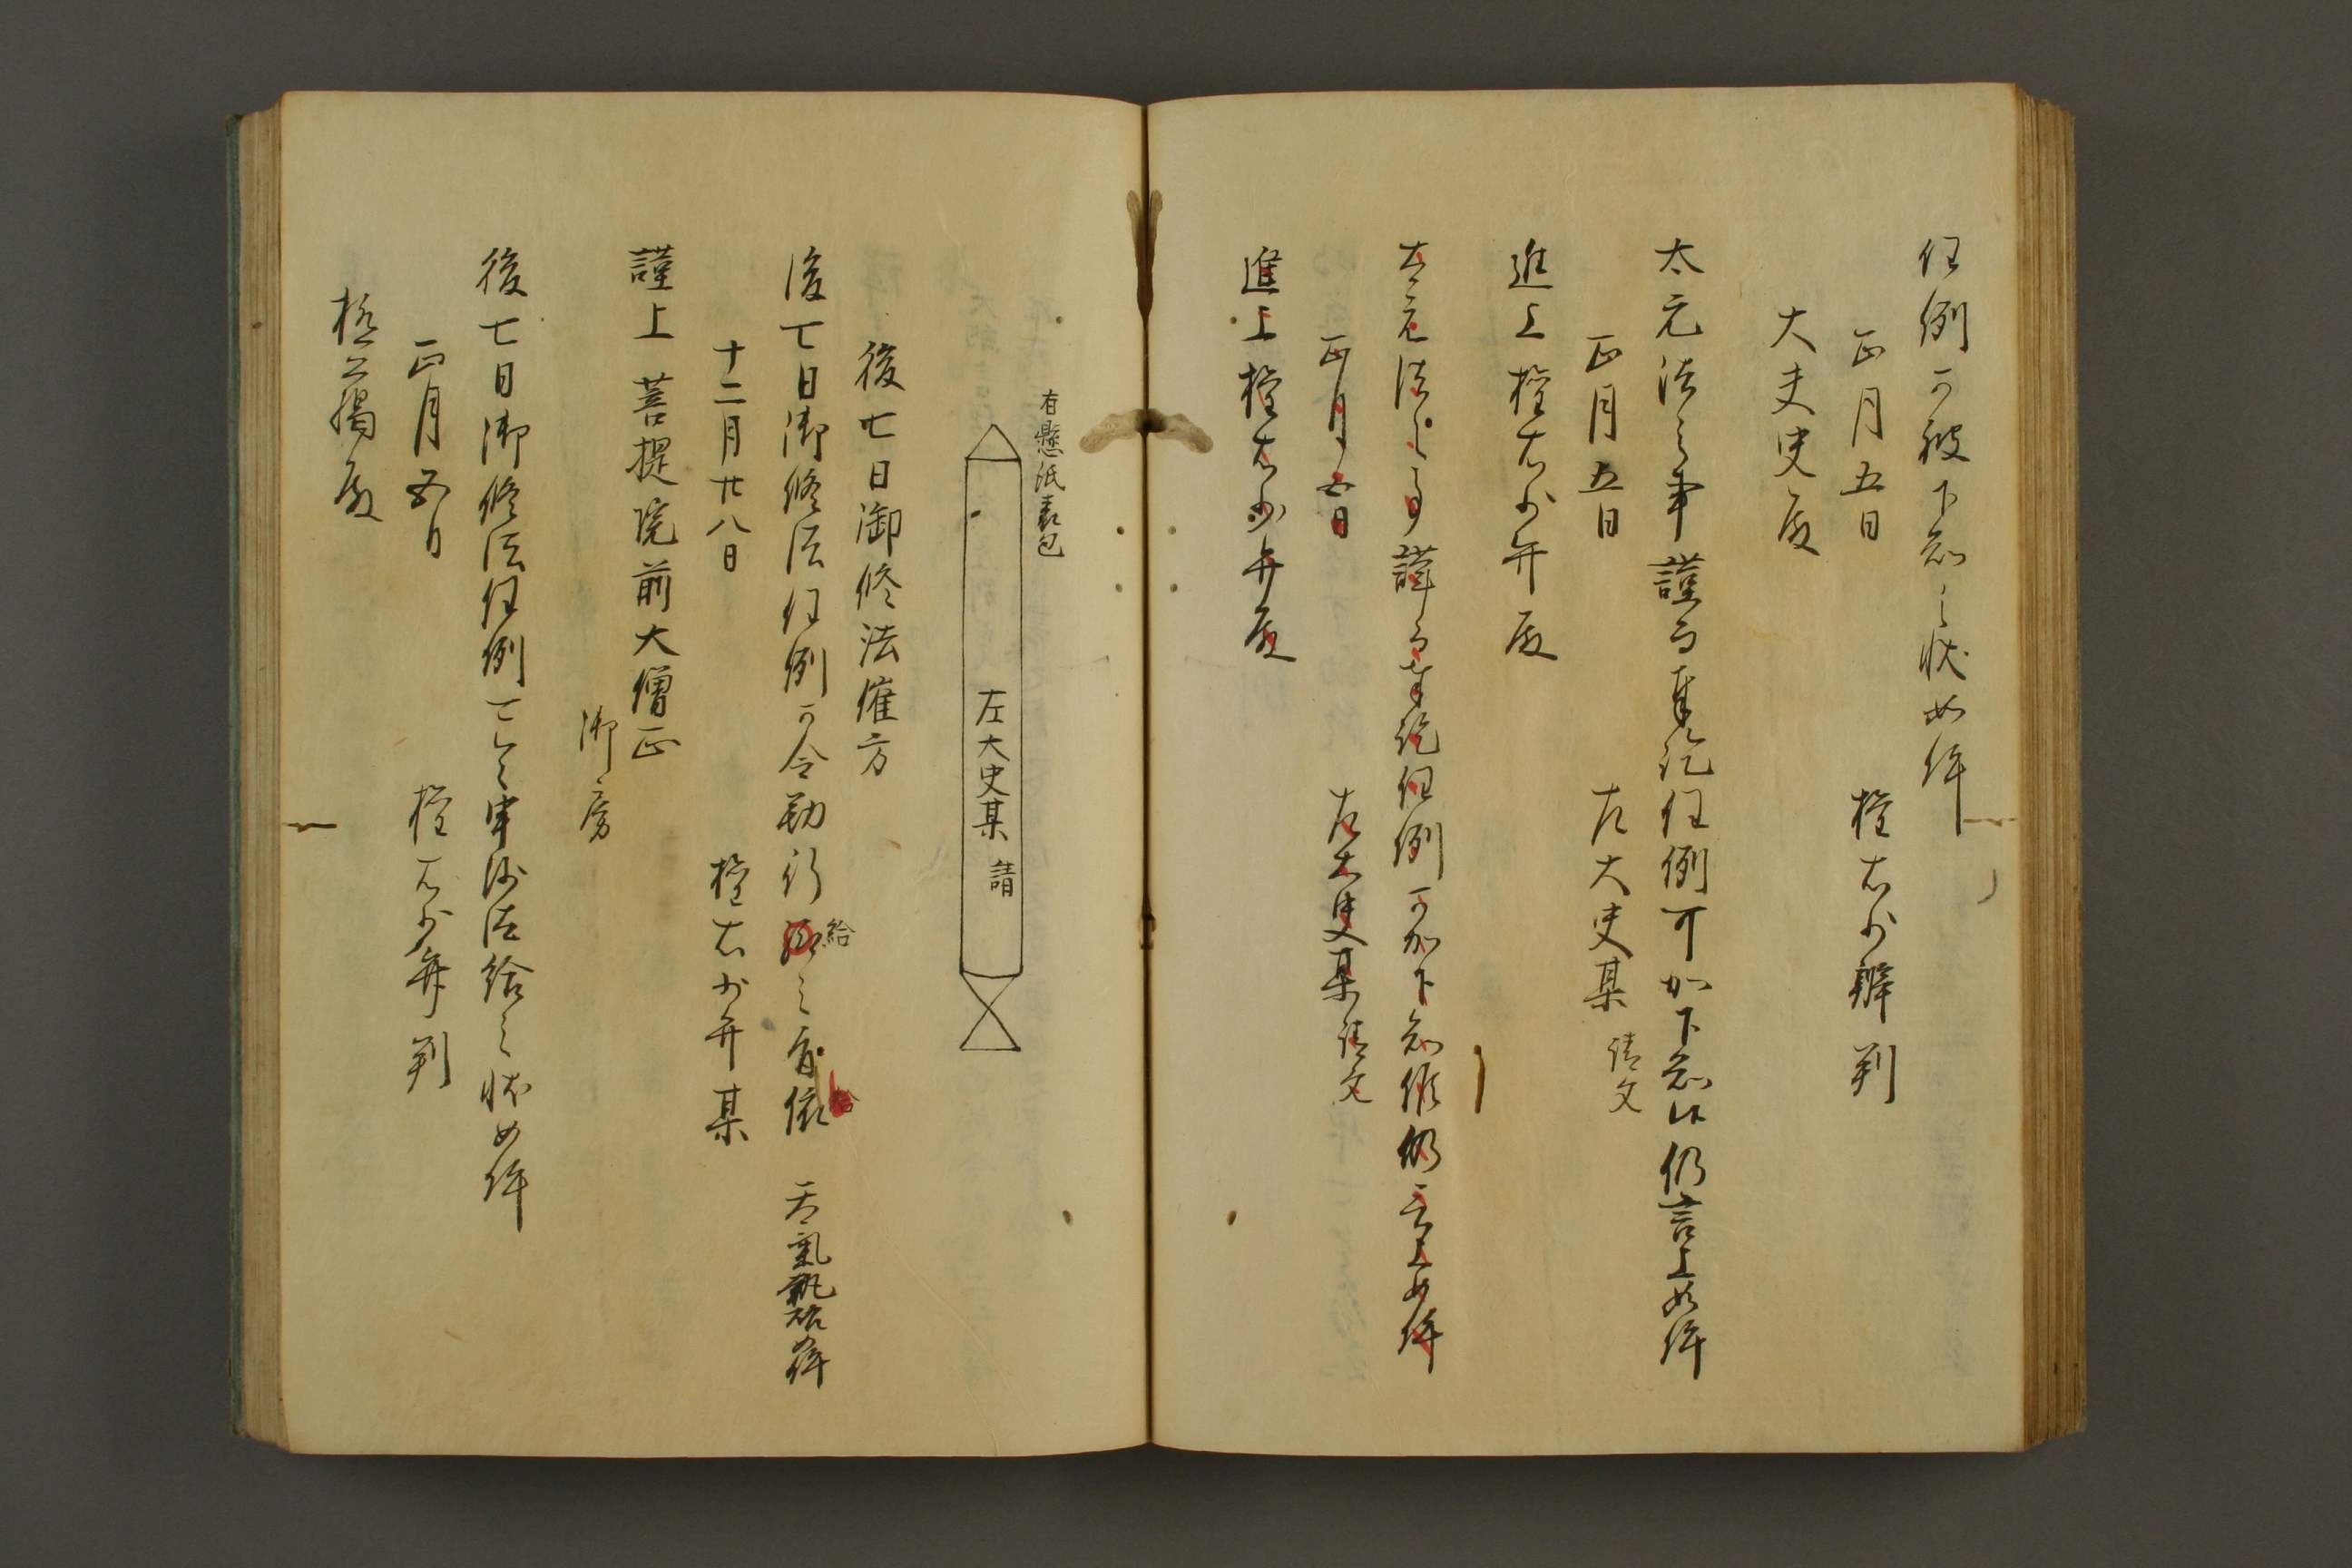 任例可被下知之状如件
正月五日
権右少辨 判
大夫史殿
太元法之事謹而奉訖任例可加下知候仍言上如件
正月五日
左大史某 請文
進上権右少弁殿
太元法之事謹而奉訖任例可加下知候仍言上如件
正月五日
左大史某請文
進上権右少弁殿
有懸紙表包
左大史某 請
後七日御修法催方
後七日御修法任例可令勤行給之旨依 天氣執啓如件
給
給
十二月廿八日
権右少弁某
謹上 菩提院前大僧正
御房
後七日御修法任例可申沙汰給之状如件
正月五日
権右少弁 判
極﨟殿